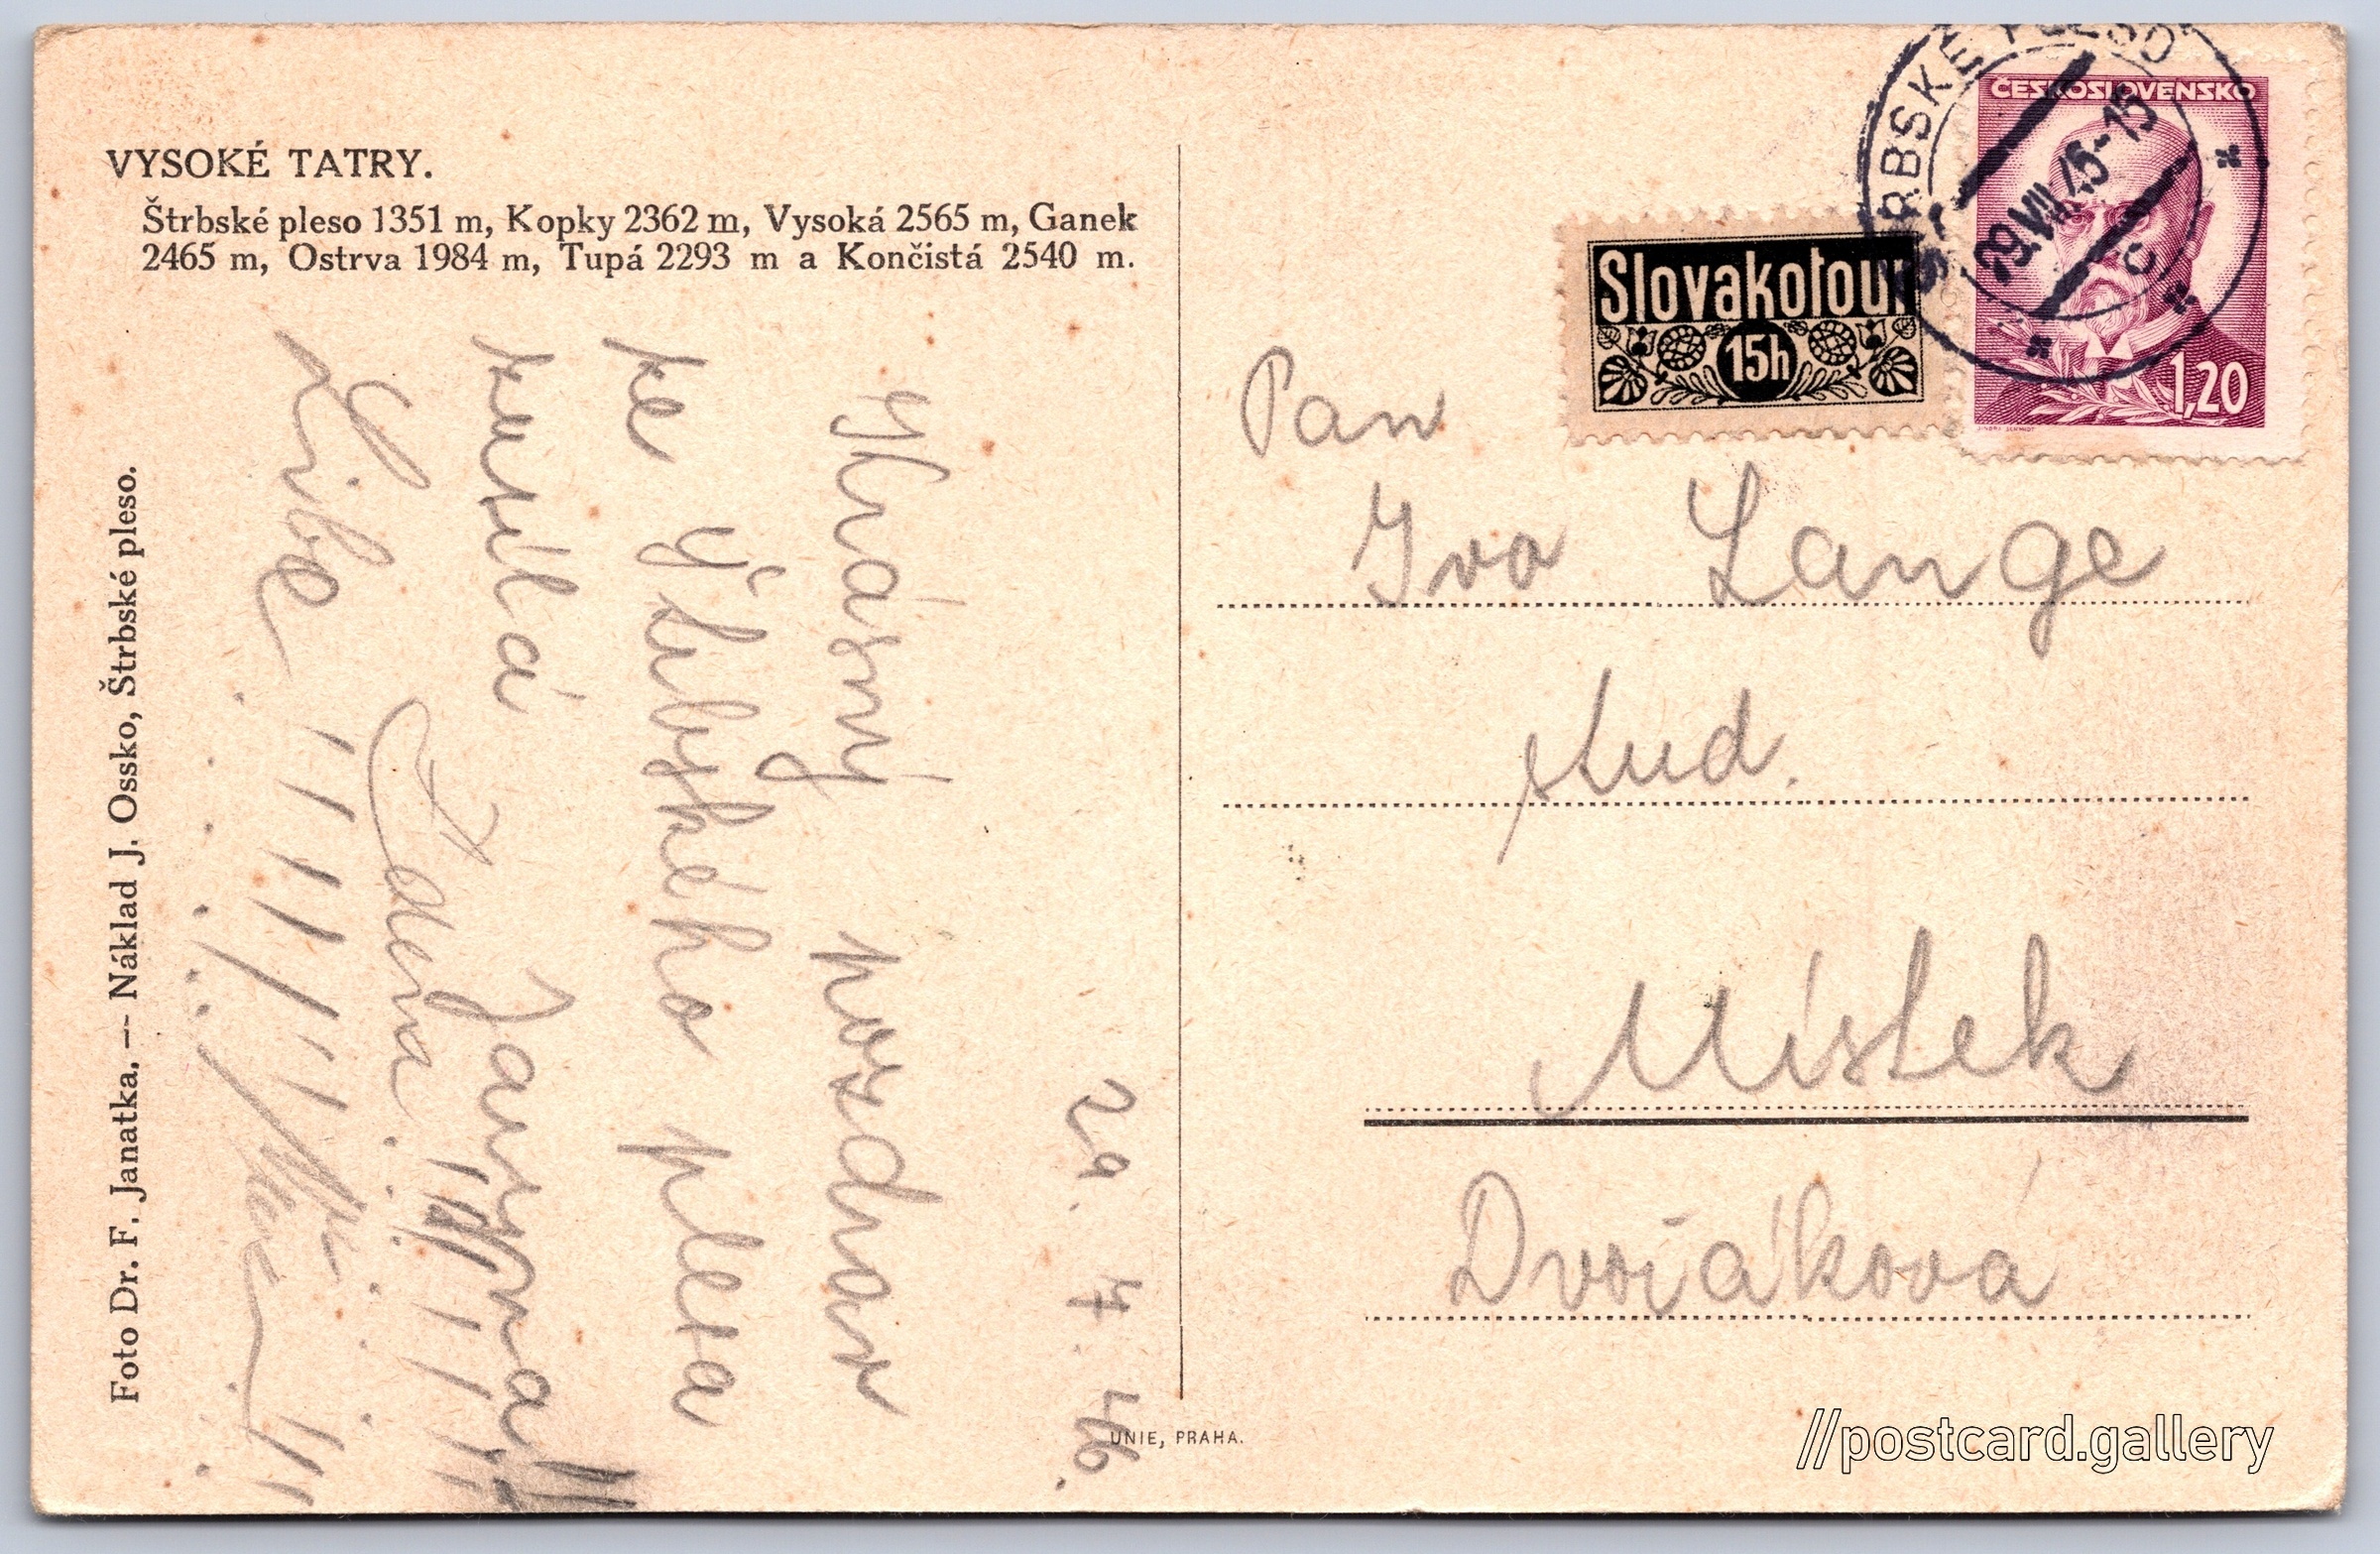 VYSOKÉ TATRY.
Štrbské pleso 1351 m, Kopky 2362 m, Vysoká 2565 m, Ganek
2465 m, Ostrva 1984 m, Tupá 2293 m a Končistá 2540 m.
Foto Dr. F. Janatka, — Náklad J. Ossko, Štrbské pleso.
29. 7. 46.
Krásný pozdrav
ze Štrbského plesa
zasílá Jarmila
Zdena
UNIE, PRAHA.
ČESKOSLOVENSKO
1,20
JINDRA SCHMIDT
ŠTRBSKÉ PLESO
29.VII.46-15
C
Slovakotour
15h
Pan
Ivo Lange
stud.
Místek
Dvořáková
//postcard.gallery